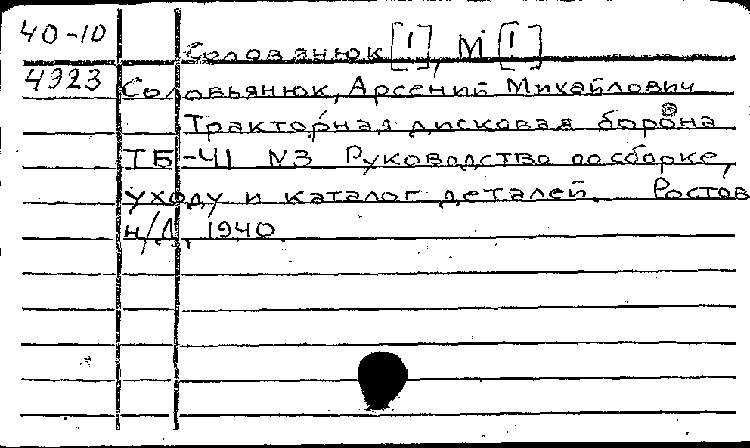 40-10 Соловянюк [!], М [!]
4923 Соловьянюк, Арсений Михайлович
Тракторная дисковая борона
ТБ-41 №3 Руководство по сборке,
уходу и каталог деталей. Ростов
н/Д, 1940.